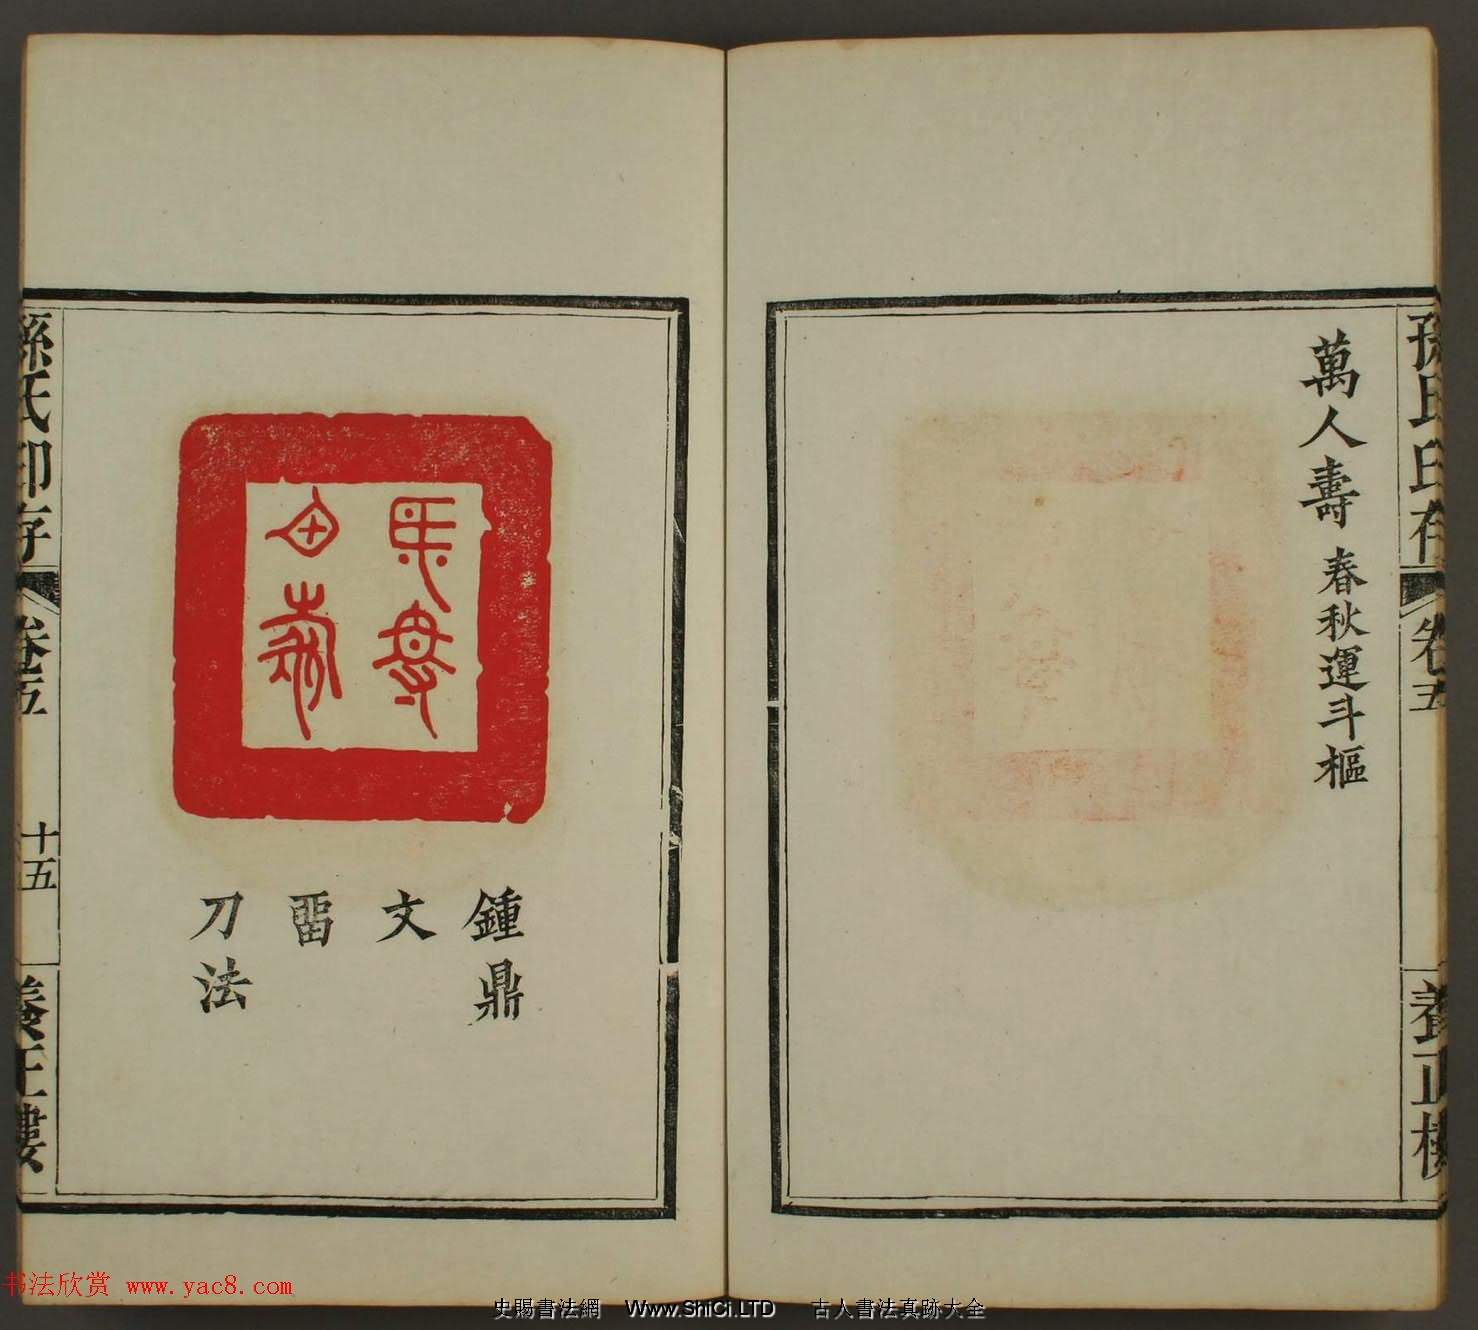 孫氏印存
卷五
養正樓
萬人壽 春秋運斗樞
鍾鼎
文
畱
刀法
孫氏印存
卷五
十五
養正樓
书法欣赏 www.yac8.com
史賜書法網 Www.ShiCi.LTD 古人書法真跡大全